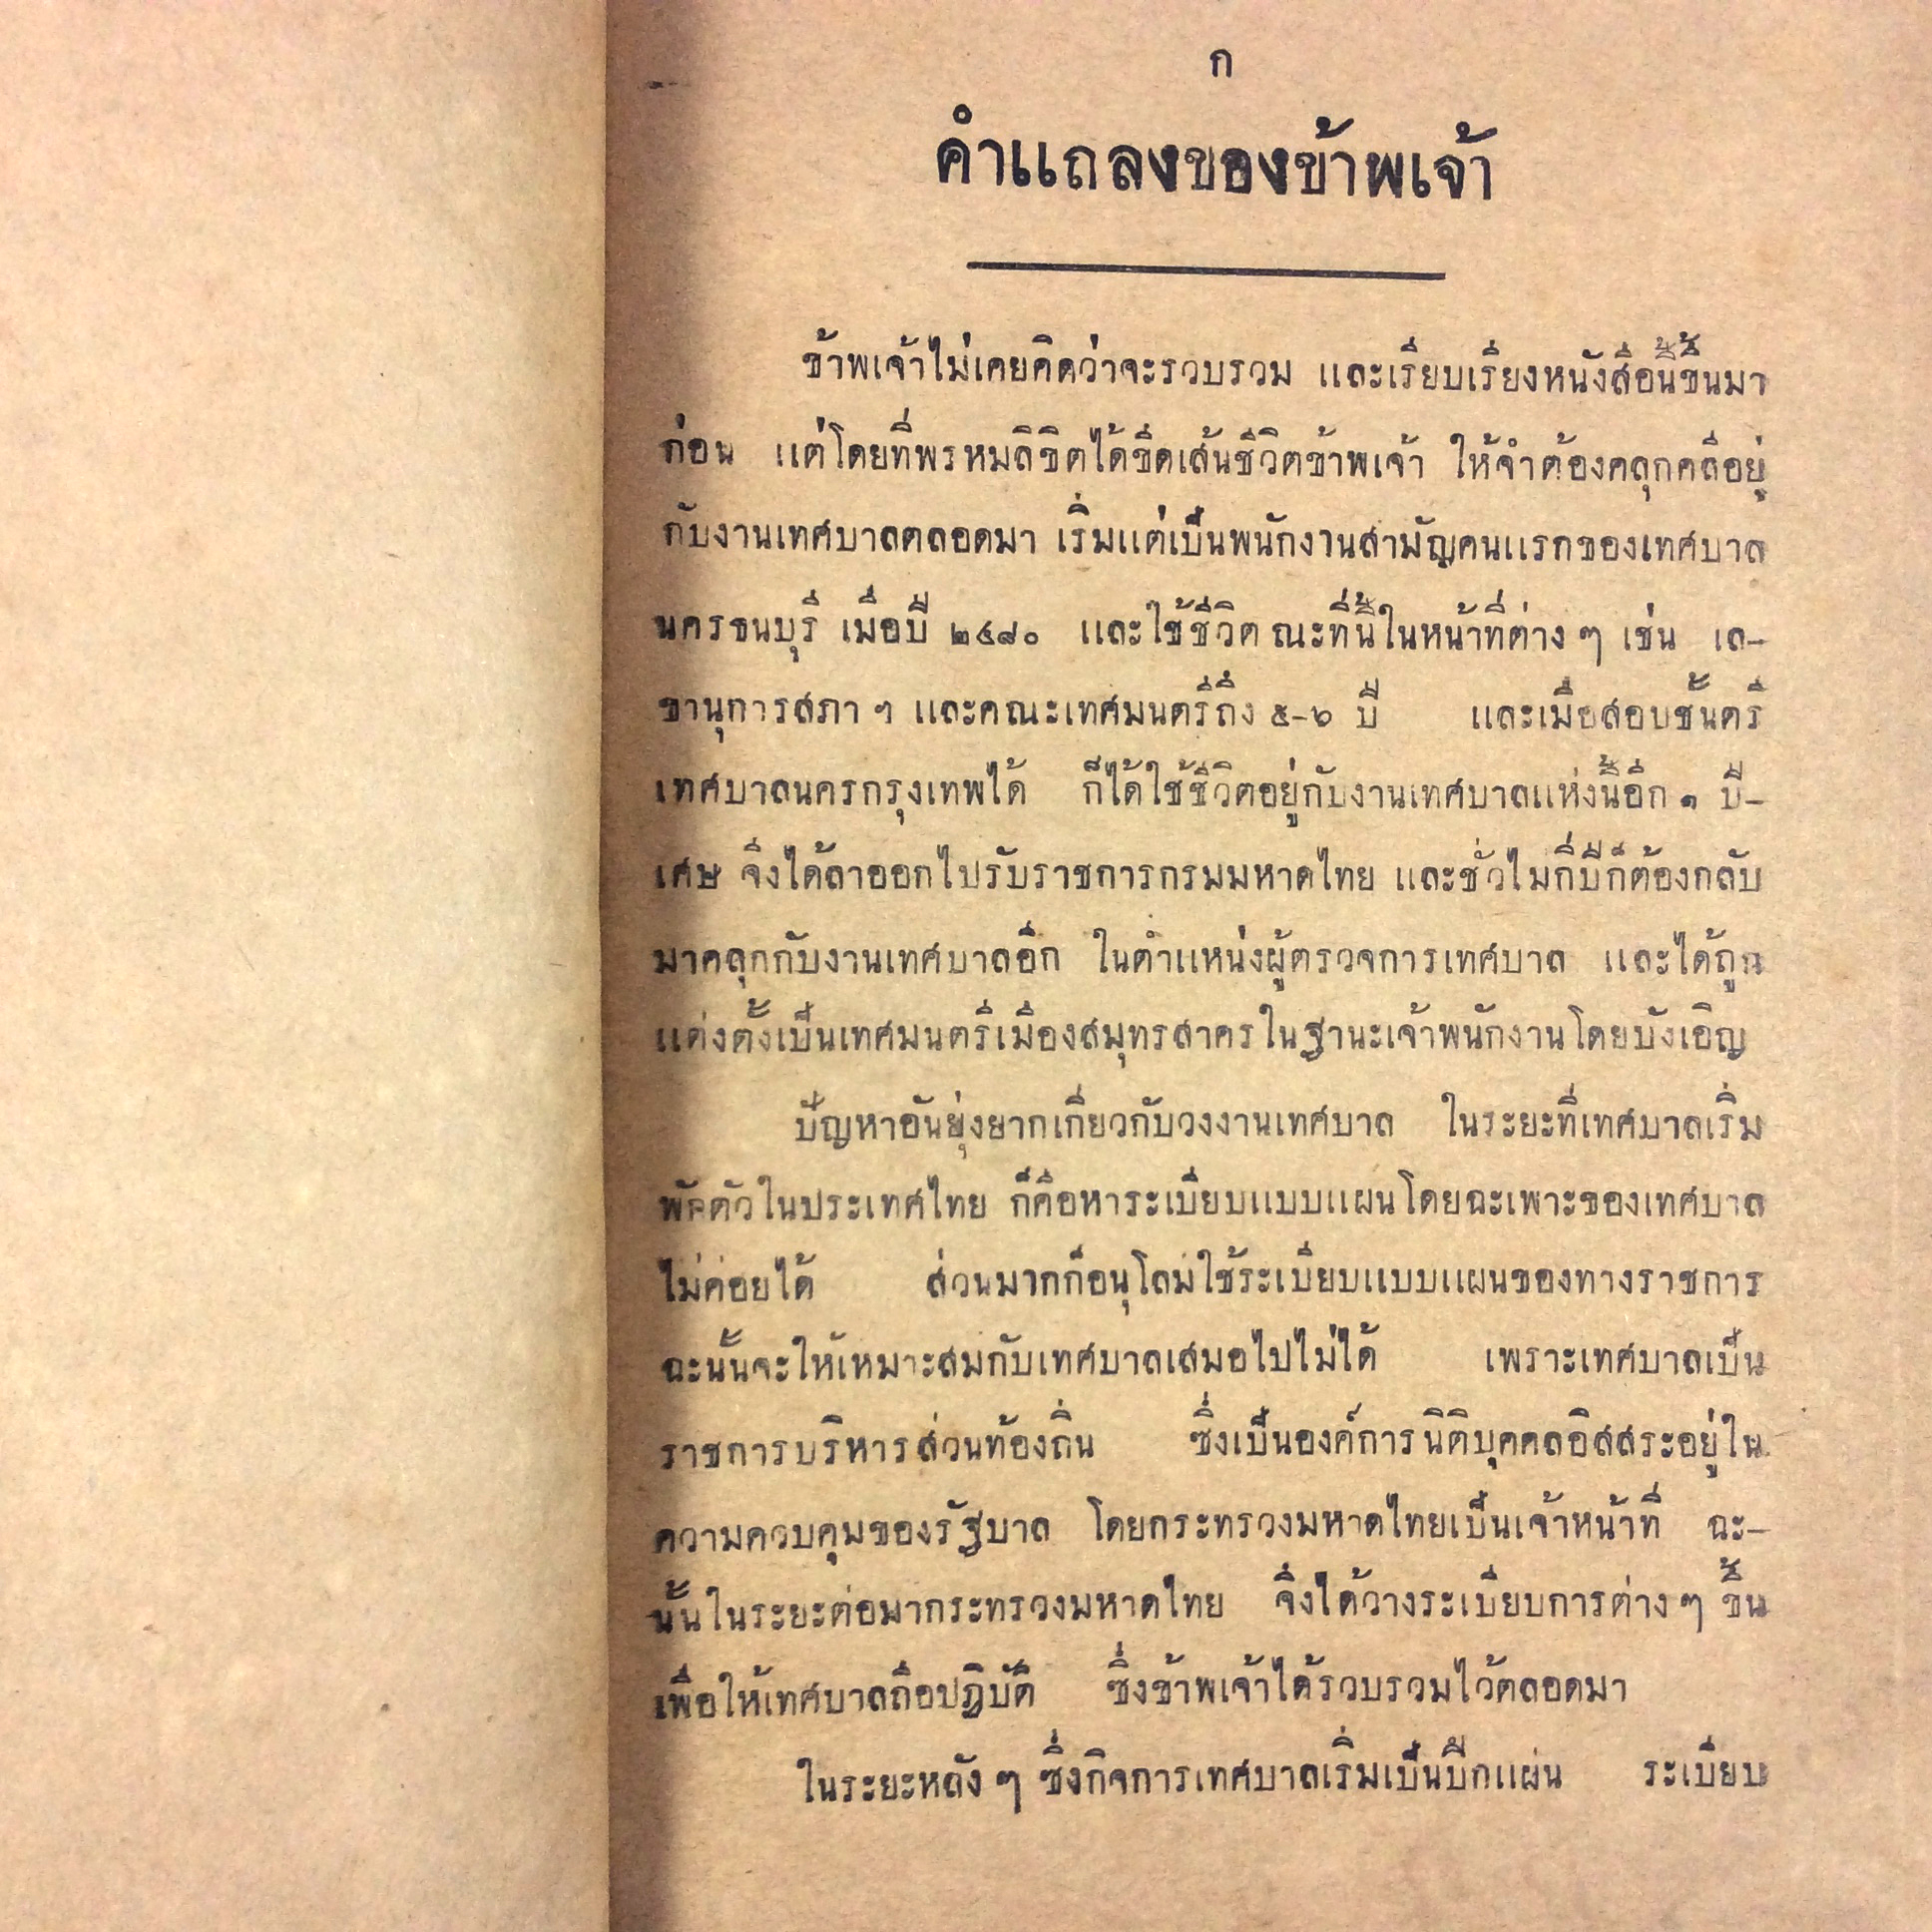 ก
คำแถลงของข้าพเจ้า
ข้าพเจ้าไม่เคยคิดว่าจะรวบรวม และเรียบเรียงหนังสือนี้ขึ้นมา
ก่อน แต่โดยที่พรหมลิขิตได้ขีดเส้นชีวิตข้าพเจ้า ให้จำต้องคลุกคลีอยู่
กับงานเทศบาลตลอดมา เริ่มแต่เป็นพนักงานสามัญคนแรกของเทศบาล
นครธนบุรี เมื่อปี ๒๔๘๐ และใช้ชีวิต ณะที่นี้ในหน้าที่ต่าง ๆ เช่น เล-
ขานุการสภา ฯ และคณะเทศมนตรีถึง ๕-๖ ปี และเมื่อสอบชั้นตรี
เทศบาลนครกรุงเทพได้ ก็ได้ใช้ชีวิตอยู่กับงานเทศบาลแห่งนี้อีก ๑ ปี-
เศษ จึงได้ลาออกไปรับราชการกรมมหาดไทย และชั่วไม่กี่ปีก็ต้องกลับ
มาคลุกกับงานเทศบาลอีก ในตำแหน่งผู้ตรวจการเทศบาล และได้ถูก
แต่งตั้งเป็นเทศมนตรีเมืองสมุทรสาครในฐานะเจ้าพนักงานโดยบังเอิญ
ปัญหาอันยุ่งยากเกี่ยวกับวงงานเทศบาล ในระยะที่เทศบาลเริ่ม
พัฒตัวในประเทศไทย ก็คือหาระเบียบแบบแผนโดยฉะเพาะของเทศบาล
ไม่ค่อยได้ ส่วนมากก็อนุโลมใช้ระเบียบแบบแผนของทางราชการ
ฉะนั้นจะให้เหมาะสมกับเทศบาลเสมอไปไม่ได้ เพราะเทศบาลเป็น
ราชการบริหารส่วนท้องถิ่น ซึ่งเป็นองค์การนิติบุคคลอิสสระอยู่ใน
ความควบคุมของรัฐบาล โดยกระทรวงมหาดไทยเป็นเจ้าหน้าที่ ฉะ-
นั้นในระยะต่อมากระทรวงมหาดไทย จึงได้วางระเบียบการต่าง ๆ ขึ้น
เพื่อให้เทศบาลถือปฏิบัติ ซึ่งข้าพเจ้าได้รวบรวมไว้ตลอดมา
ในระยะหลัง ๆ ซึ่งกิจการเทศบาลเริ่มเป็นปึกแผ่น ระเบียบ